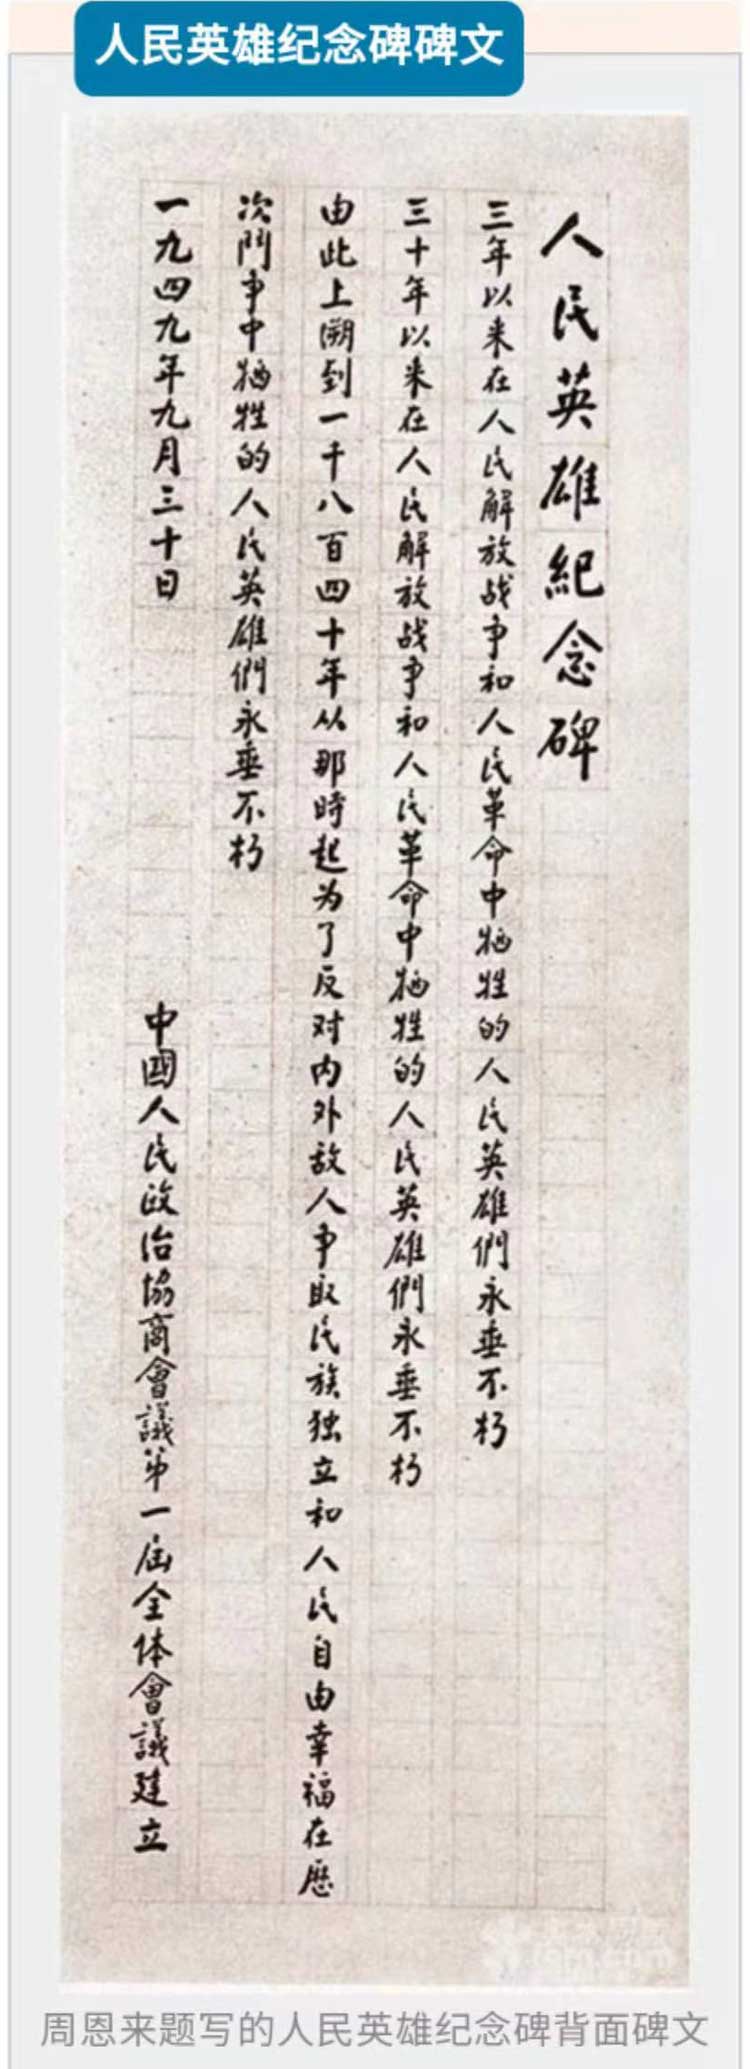 人民英雄纪念碑碑文
人民英雄紀念碑
三年以来在人民解放战争和人民革命中牺牲的人民英雄們永垂不朽
三十年以来在人民解放战争和人民革命中牺牲的人民英雄們永垂不朽
由此上溯到一千八百四十年从那時起为了反对内外敌人争取民族独立和人民自由幸福在歷
次鬥争中牺牲的人民英雄們永垂不朽
一九四九年九月三十日 中國人民政治協商會議第一届全体會議建立
周恩来题写的人民英雄纪念碑背面碑文